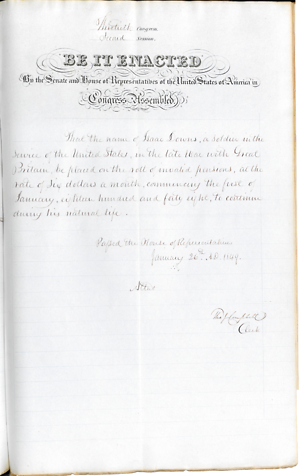 Thirtieth Congress
Second Session
BE IT ENACTED
By the Senate and House of Representatives of the United States of America in
Congress Assembled,
That the name of Isaac Downs, a soldier in the
service of the United States, in the late war with Great
Britain, be placed on the roll of invalid pensions, at the
rate of Six dollars a month, commencing the first of
January, eighteen hundred and forty eight, to continue
during his natural life.
Passed the House of Representatives
January 26th, AD. 1849.
Attest
Clerk